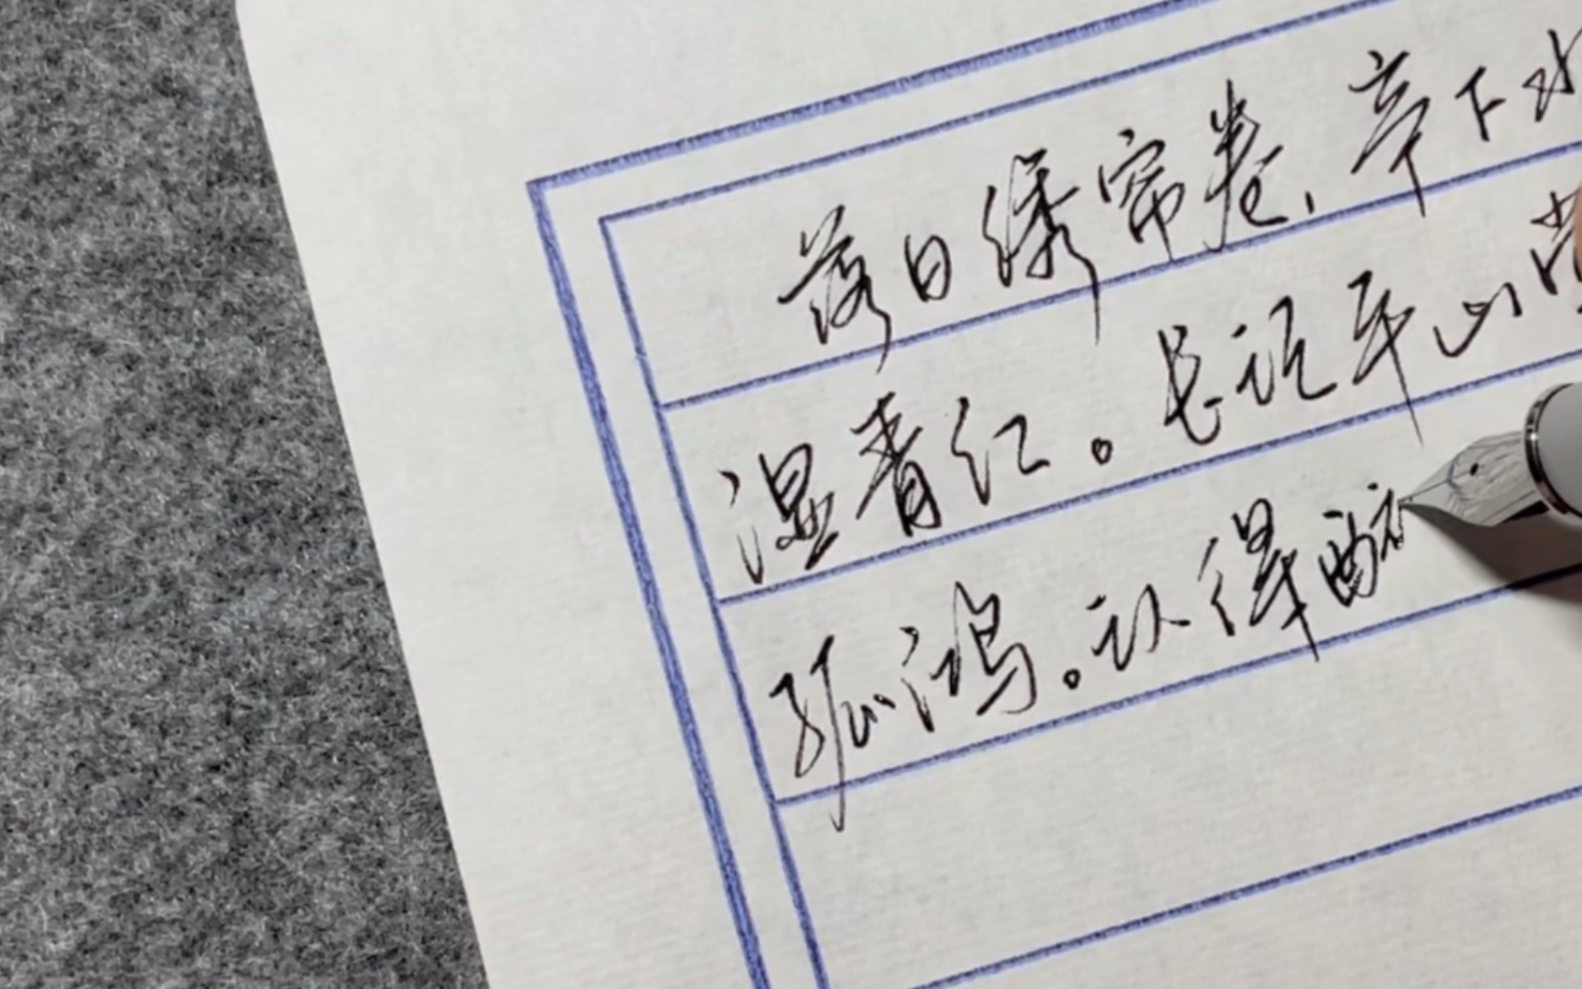 落日绣帘卷，亭下水
湿青红。长记平山堂
孤鸿。认得醉